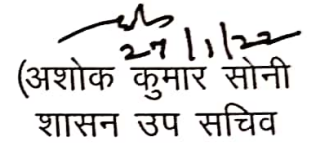 27/1/22
(अशोक कुमार सोनी
शासन उप सचिव